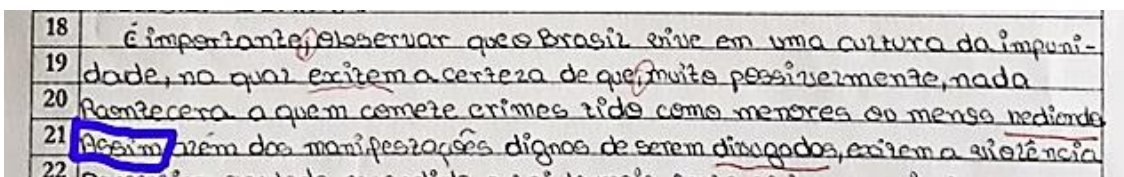 18 É importante, observar que o Brasil vive em uma cultura da impuni-
19 dade, na qual exitem a certeza de que, muito possivelmente, nada
20 Acontecera a quem comete crimes tido como menores ou menos nediondo
21 Assim além das manifestações dignos de serem divugados, exitem a violência
22